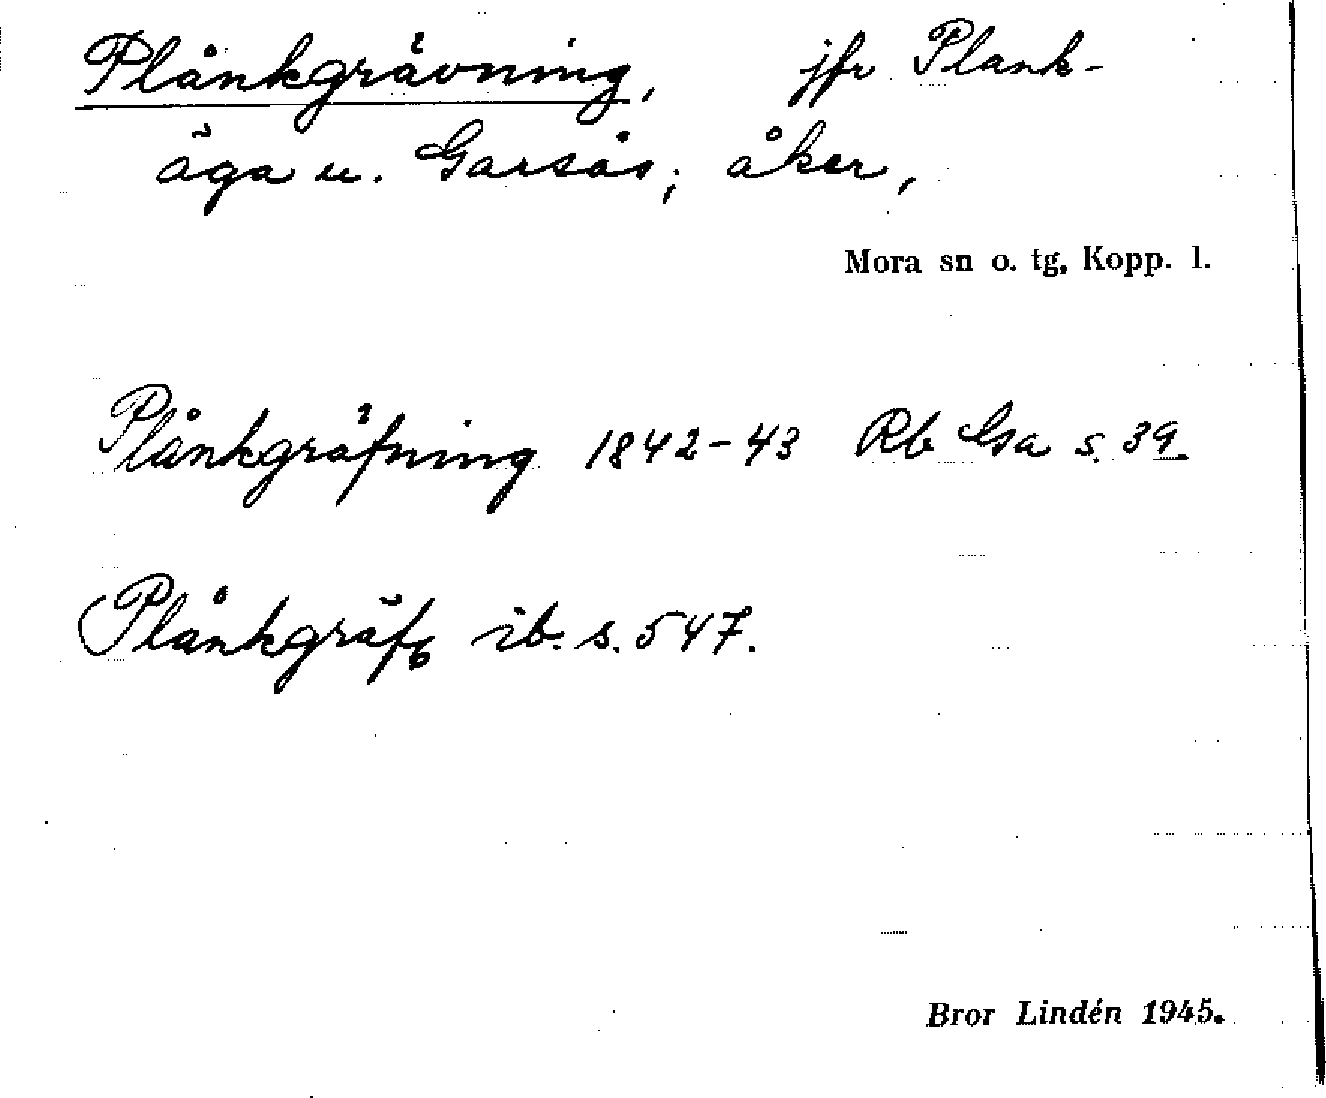 Plånkgrävning, jfr Plank-
äga u. Garsås; åker,
Mora sn o. tg. Kopp. l.
Plånkgräfning 1842-43 Rb Gsa s. 39.
Plånkgräfg ib. s. 547.
Bror Lindén 1945.